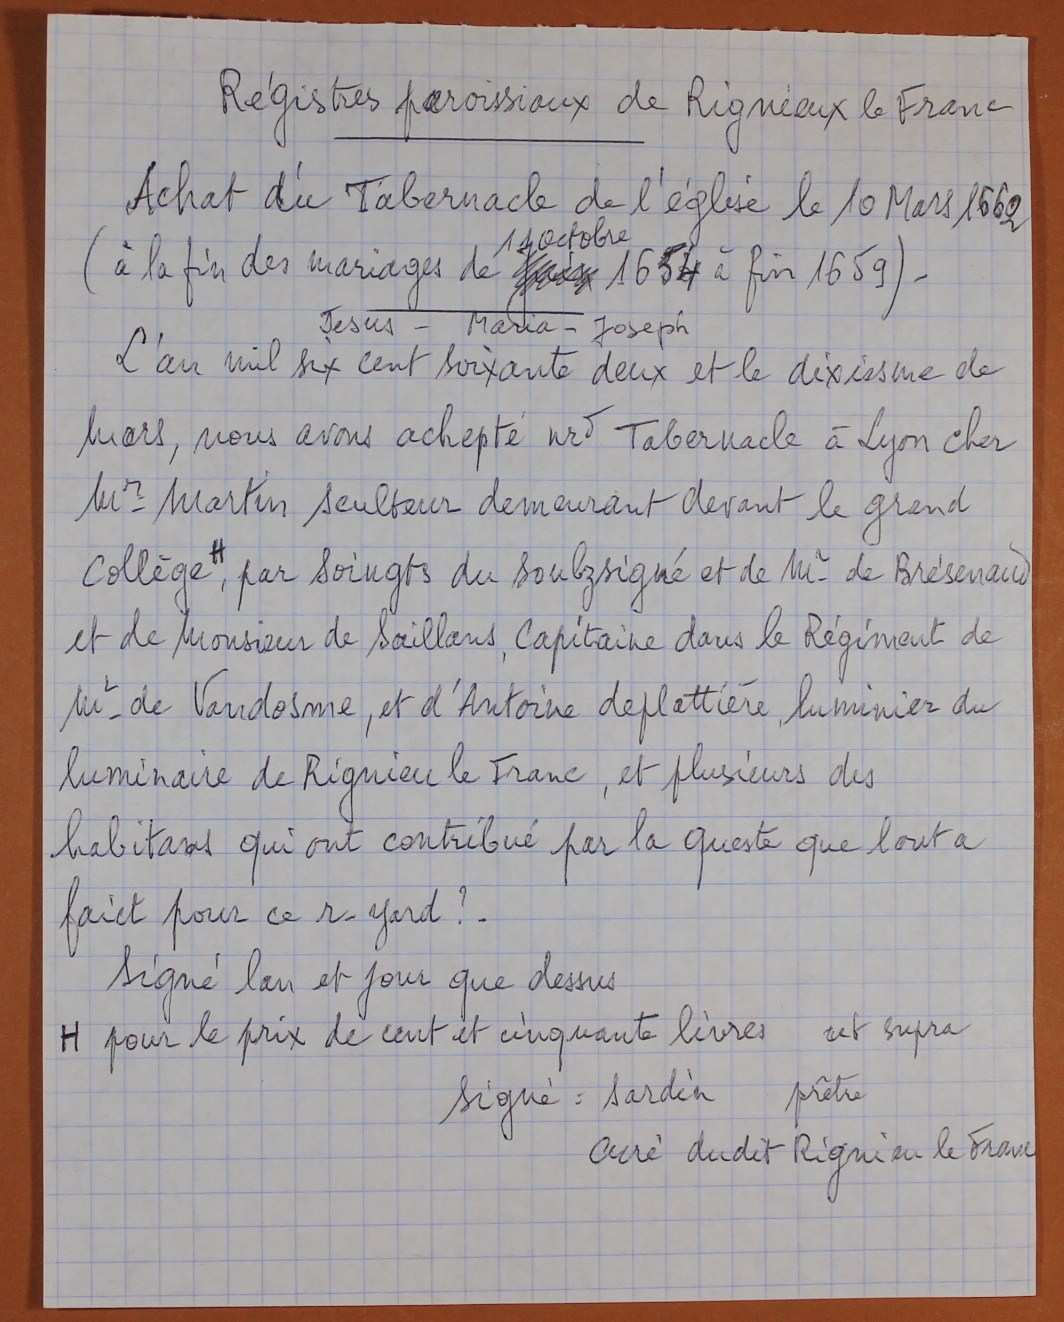 Régistres paroissiaux de Rignieux le Franc
Achat du Tabernacle de l'église le 10 Mars 1662
11 octobre
(à la fin des mariages de 1654 à fin 1659)-
Jesus - Maria - Joseph
L'an mil six cent soixante deux et le dixiesme de
Mars, nous avons achepté nr͞e Tabernacle à Lyon cher
Mr Martin Sculteur demeurant devant le grand
Collège H, par Soingts du Soubzsigné et de Mr de Brésenaud
et de Monsieur de Saillans, Capitaine dans le Régiment de
Mr de Vandosme, et d'Antoine deplattière, luminier du
luminaire de Rignieu le Franc, et plusieurs des
habitans qui ont contribué par la queste que lont a
faict pour ce r-yard ? -
Signé lan et jour que dessus
H pour le prix de cent et cinquante livres ut supra
Signé : Sardin prêtre
Curé dudit Rignieu le Franc